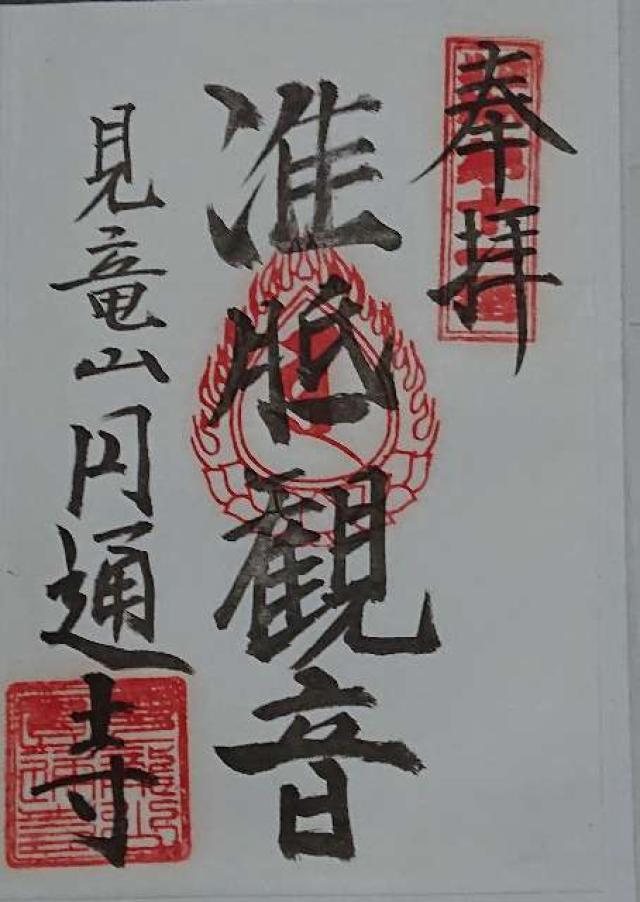 奉拝
准胝観音
見竜山円通寺